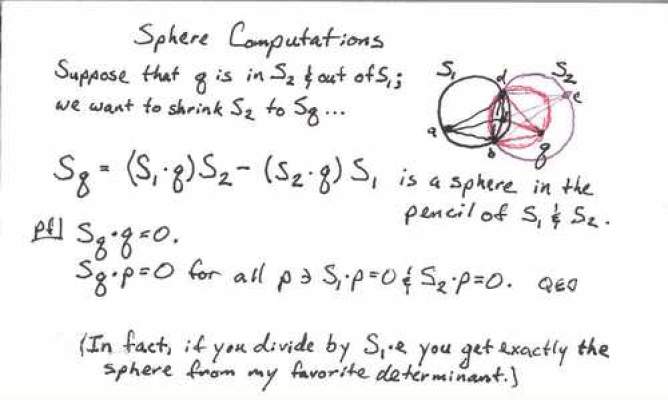 Sphere Computations
Suppose that q is in S₂ & out of S₁;
we want to shrink S₂ to Sq...
S₁ S₂
d
e
a
b
q
Sq = (S₁·q)S₂ - (S₂·q)S₁ is a sphere in the
pencil of S₁ & S₂.
pf] Sq·q=0.
Sq·p=0 for all p ∋ S₁·p=0 & S₂·p=0. QED
(In fact, if you divide by S₁·e you get exactly the
sphere from my favorite determinant.)